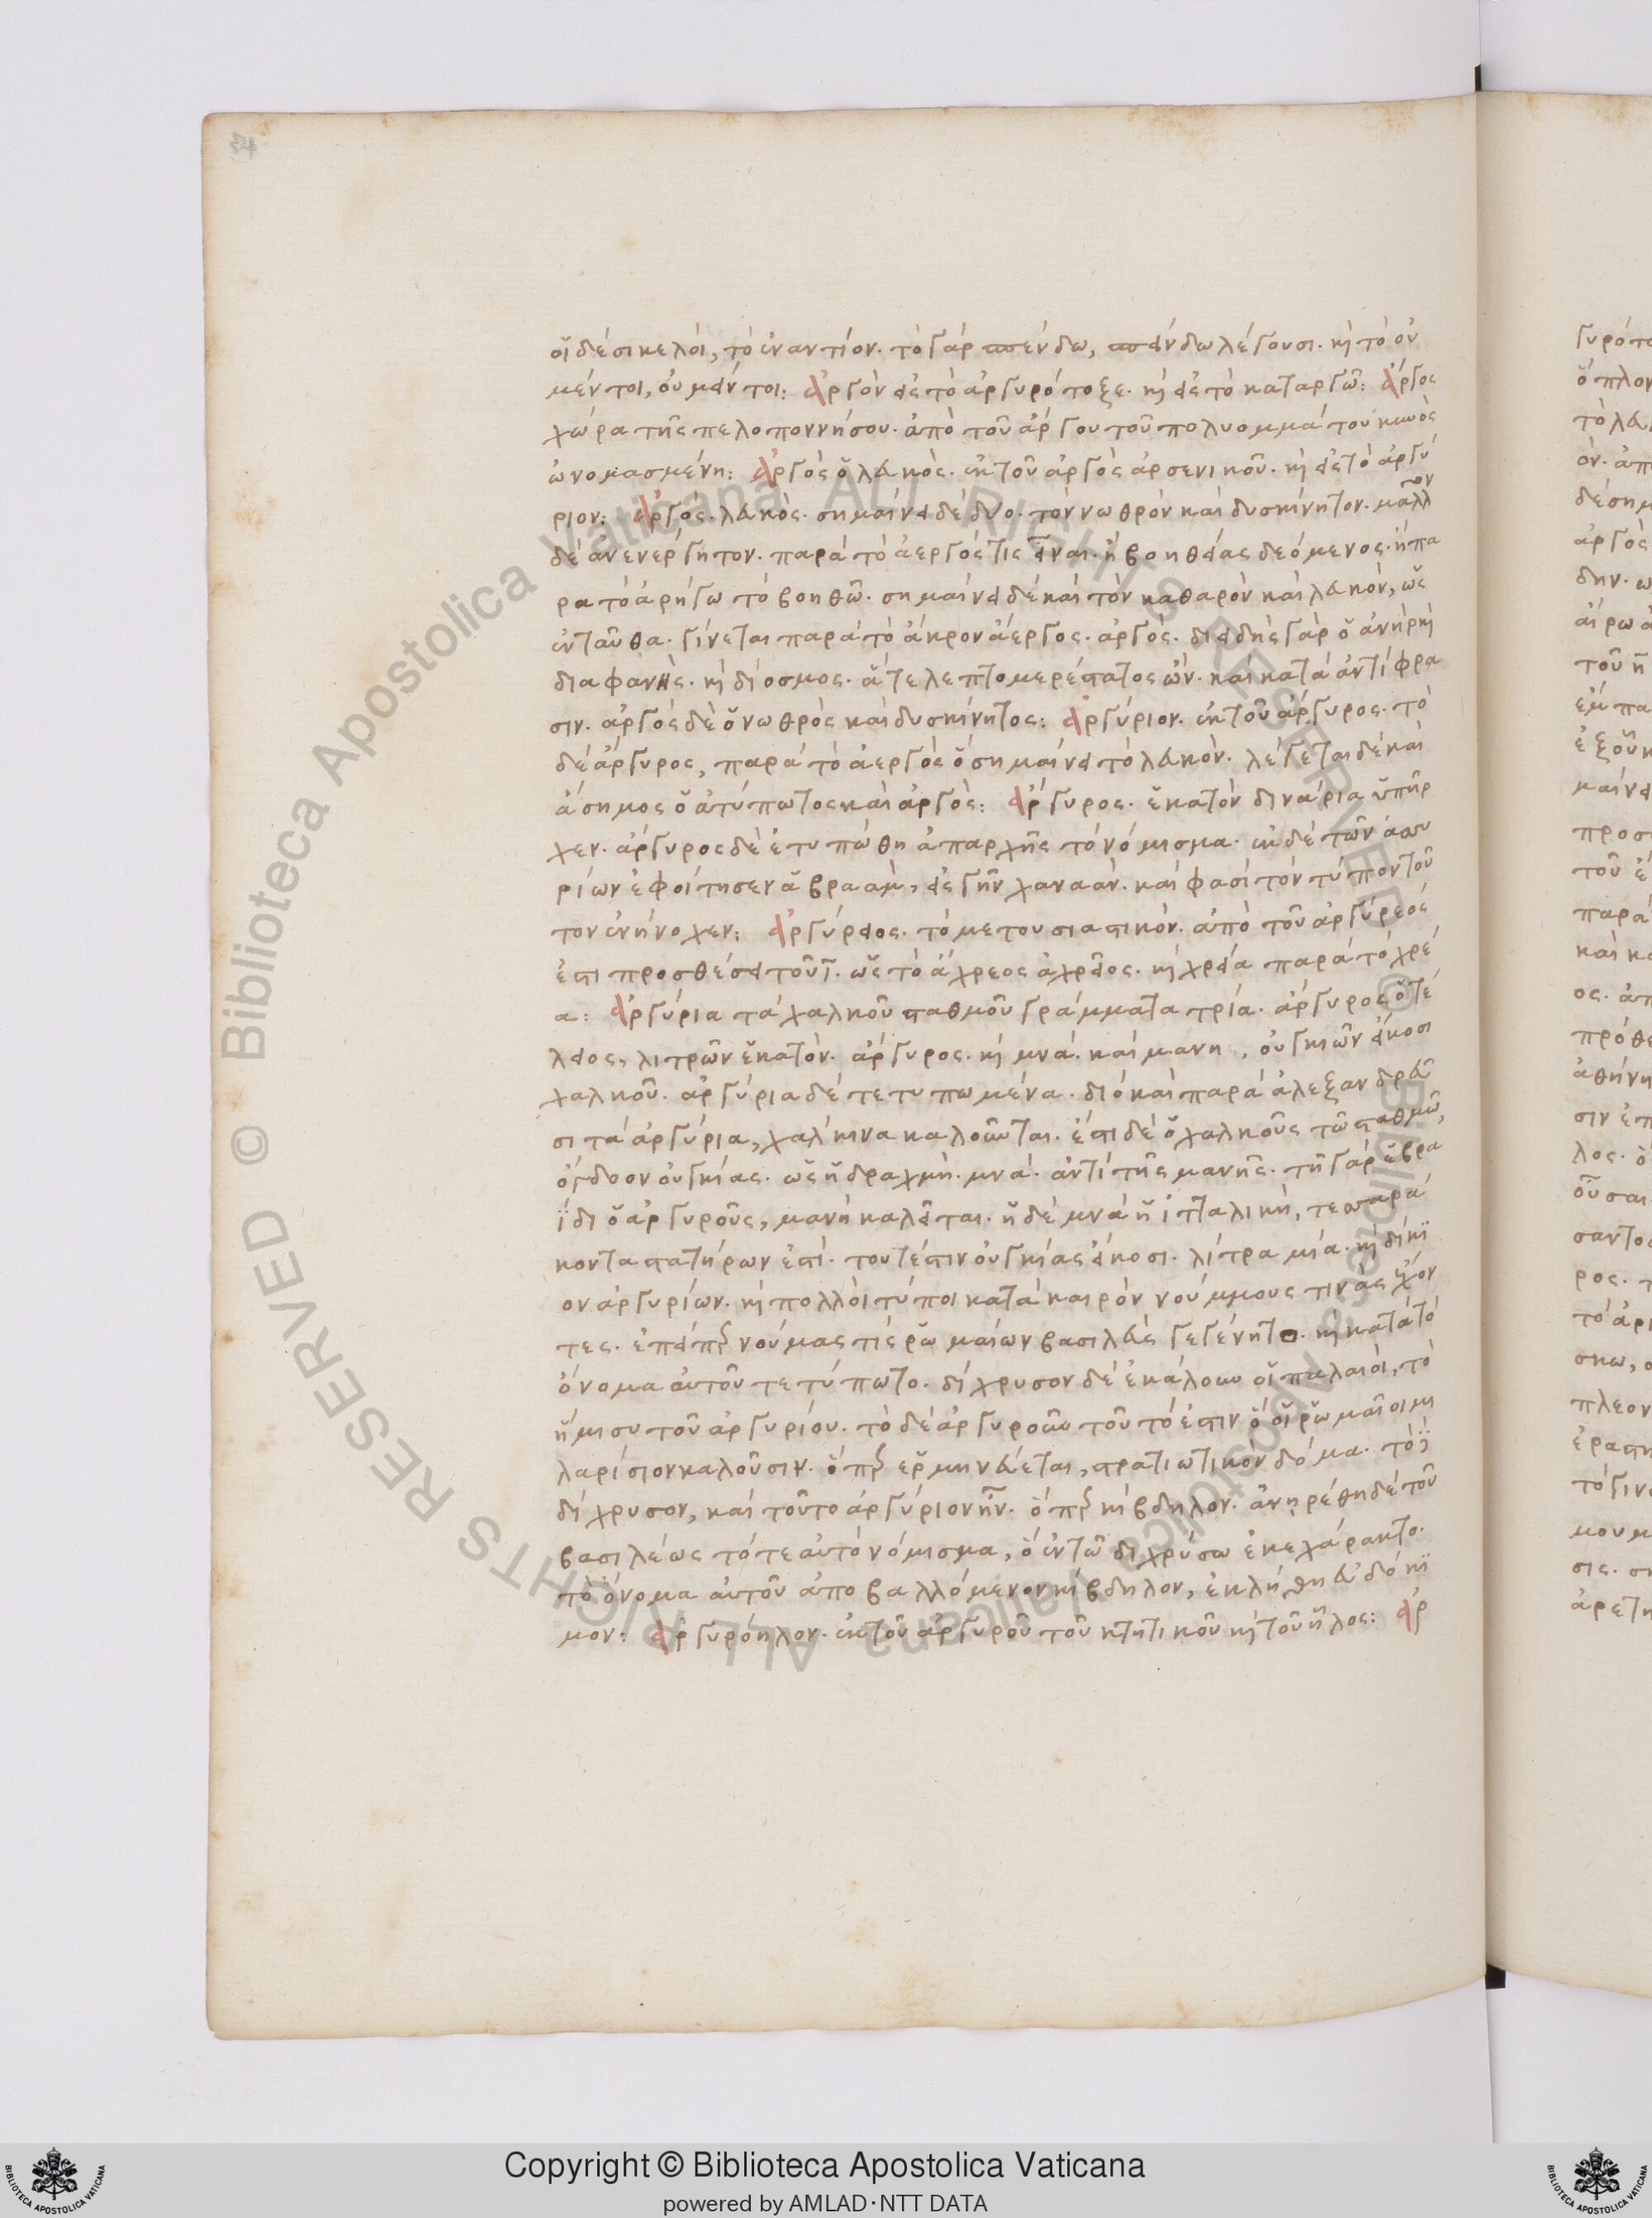 οἱ δὲ σικελοὶ, τὸ ἐναντίον. τὸ γὰρ σπένδω, σπείνδω λέγουσι. κὶ τὸ οὐ
μέντοι, οὐ μείντοι: Ἀργὸν εἰς τὸ ἀργυρότοξε. κὶ εἰς τὸ καταργῶ: Ἄργος
χώρα τῆς πελοποννήσου. ἀπὸ τοῦ ἄργου τοῦ πολυομμάτου κυνὸς
ὠνομασμένη: Ἀργὸς ὁ λευκὸς. ἐκ τοῦ ἀργὸς ἀρσενικοῦ. κὶ εἰς τὸ ἀργύ
ριον: Ἀργός. λευκὸς. σημαίνει δὲ δύο. τὸν νωθρὸν καὶ δυσκίνητον. μᾶλλον
δὲ ἀνενέργητον. παρὰ τὸ ἀεργός τις εἶναι. ἢ βοηθείας δεόμενος. ἢ πα
ρα τὸ ἀρήγω τὸ βοηθῶ. σημαίνει δὲ καὶ τὸν καθαρὸν καὶ λευκὸν, ὡς
ἐνταῦθα. γίνεται παρὰ τὸ ἄκρον ἀέργος. ἀργός. διειδὴς γὰρ ὁ ἀνὴρ κὶ
διαφανὴς. κὶ δίοσμος. ἅτε λεπτομερέστατος ὤν. καὶ κατὰ ἀντίφρα
σιν. ἀργὸς δὲ ὁ νωθρὸς καὶ δυσκίνητος: Ἀργύριον. ἐκ τοῦ ἄργυρος. τὸ
δὲ ἄργυρος, παρὰ τὸ ἀεργὸς ὃ σημαίνει τὸ λευκόν. λέγεται δὲ καὶ
ἄσημος ὁ ἀτύπωτος καὶ ἀργὸς: Ἄργυρος. ἑκατὸν δινάρια ὑπῆρ
χεν. ἄργυρος δὲ ἐτυπώθη ἀπαρχῆς τὸ νόμισμα. ἐκ δὲ τῶν ἀσσυ
ρίων ἐφοίτησεν ἁβραὰμ, εἰς γῆν χαναάν. καὶ φασὶ τὸν τύπον τοῦ
τον ἐνήνοχεν: Ἀργύρειος. τὸ μετουσιαστικόν. ἀπὸ τοῦ ἀργύρεος
ἐστι προσθέσει τοῦ ϊ. ὡς τὸ ἄχρεος ἀχρεῖος. κὶ χρεία παρὰ τὸ χρέ
α: Ἀργύρια τὰ χαλκοῦ σταθμοῦ γράμματα τρία. ἄργυρος ὁ τέ
λειος, λιτρῶν ἑκατόν. ἄργυρος. κὶ μνά. καὶ μανη, οὐγκιῶν εἴκοσι
χαλκοῦ. ἀργύρια δὲ τετυπωμένα. διὸ καὶ παρὰ ἀλεξανδρεῦ
σι τὰ ἀργύρια, χαλκινα καλοῦνται. ἔστι δὲ ὁ χαλκοῦς τῶ σταθμῶ,
ὄγδοον οὐγκίας. ὡς ἡ δραχμὴ. μνά. ἀντὶ τῆς μανῆς. τῆ γὰρ ἑβρα
ΐδι ὁ ἀργυροῦς, μανὴ καλεῖται. ἡ δὲ μνὰ ἡ ἰταλικὴ, τεσσαρά
κοντα στατήρων ἐστί. τουτέστιν οὐγκίας εἴκοσι. λίτρα μία. κὶ δίκϊ
ον ἀργυρίων. κὶ πολλοὶ τύποι κατὰ καιρὸν νούμμους τινὰς ἔχον
τες. ἐπείπερ νούμας τὶς ῥωμαίων βασιλεὺς γεγένητο. κὶ κατὰ τὸ
ὄνομα αὐτοῦ τετύπωτο. δίχρυσον δὲ ἐκάλουν οἱ παλαιοὶ, τὸ
ἥμισυ τοῦ ἀργυρίου. τὸ δὲ ἀργυροῦν τοῦτό ἐστιν ὃ οἱ ῥωμαῖοι μι
λαρίσιον καλοῦσιν. ὅπερ ἑρμηνεύεται, στρατιωτικὸν δόμα. τὸ ϊ
δίχρυσον, καὶ τοῦτο ἀργύριον ἦν. ὅπερ κίβδηλον. ἀνῃρέθη δὲ τοῦ
βασιλέως τότε αὐτὸ νόμισμα, ὃ ἐν τῶ διχρύσω ἐκεχάρακτο.
τὸ ὄνομα αὐτοῦ ἀποβαλλόμενον κίβδηλον, ἐκλήθη εὐδόκϊ
μον: Ἀργυρόηλον. ἐκ τοῦ ἀργυροῦ τοῦ κτητικοῦ κὶ τοῦ ἧλος: Ἀρ
Copyright © Biblioteca Apostolica Vaticana
powered by AMLAD・NTT DATA